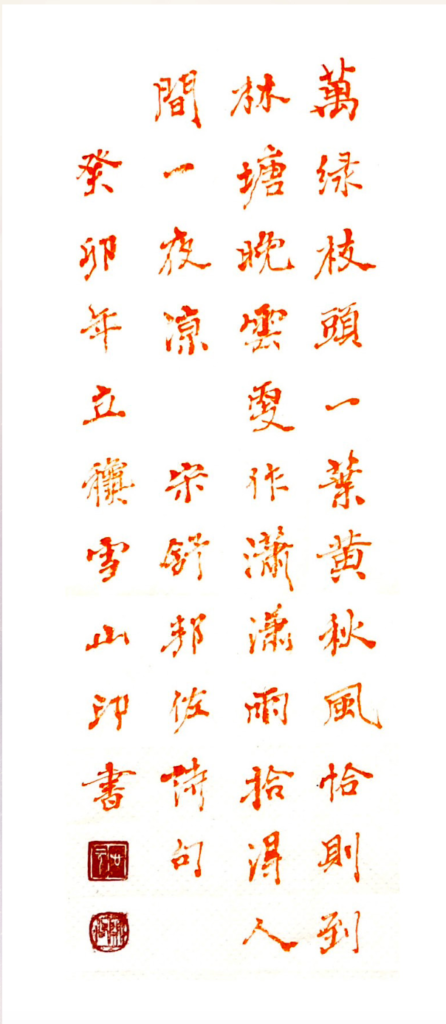 萬绿枝頭一葉黄秋風恰則到
林塘晚雲變作瀟潇雨拾得人
間一夜凉 宋舒邦佐詩句
癸卯年立龝雪山印書